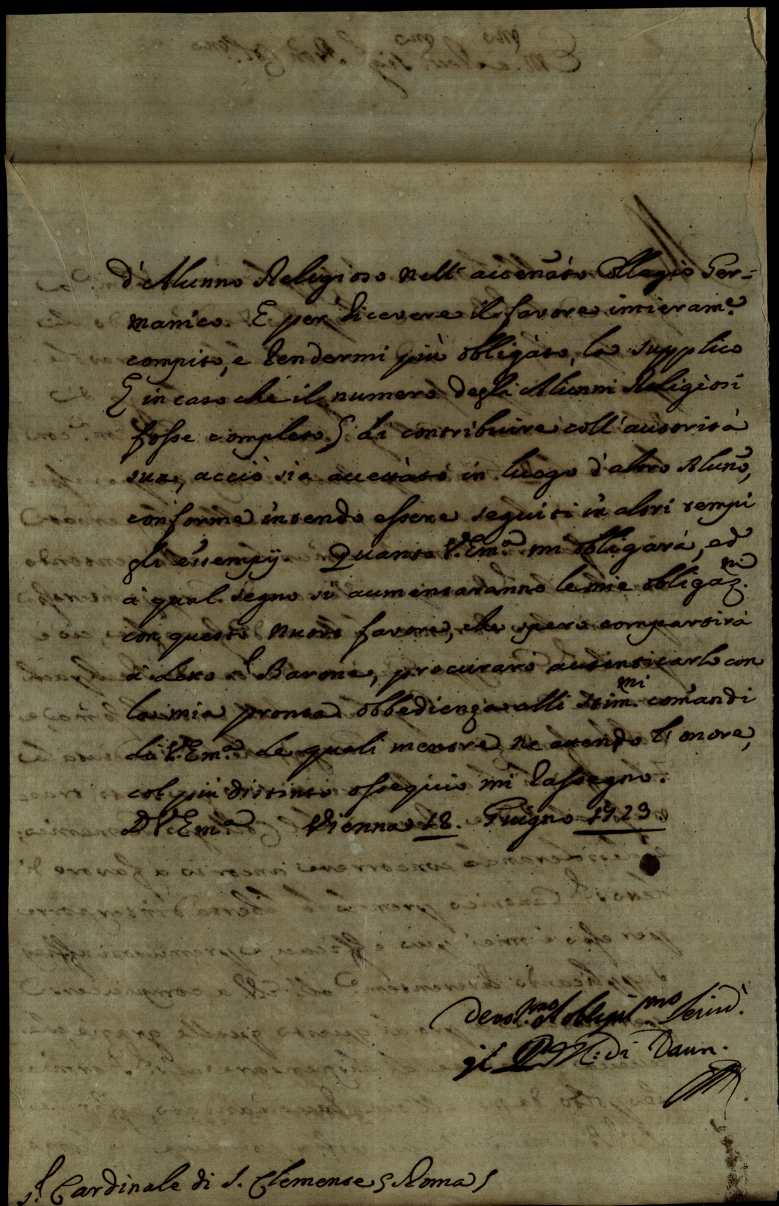 d'Alunno Religioso nell'accenato Collegio Ger=
manico. E per ricevere il favore intieram.e
compito, e rendermi più obligato, la supplico
( in caso che il numero degli Alunni Religiosi
fosse completo ) di contribuire coll'autorità
sua, acciò sia accettato in luogo d'altro Aluno,
conforme intendo essere seguiti in altri tempi
gli essempij. Quanto V. Em.a mi obligarà, ed
à qual segno si aumentaranno le mie obligaz.ni
con questo nuovo favore, che spero compartirà
à detto S.r Barone, procurarò autenticarlo con
la mia pronta obbedienza alli stim.mi comandi
di V. Em.a de quali mentre ne attendo l'honore,
col più distinto ossequio mi rassegno.
D V. Em.a Vienna 12. Giugno 1723
devot.mo obligat.mo Serud.
il di Daun.
S.r Cardinale di S. Clemente ( Roma )